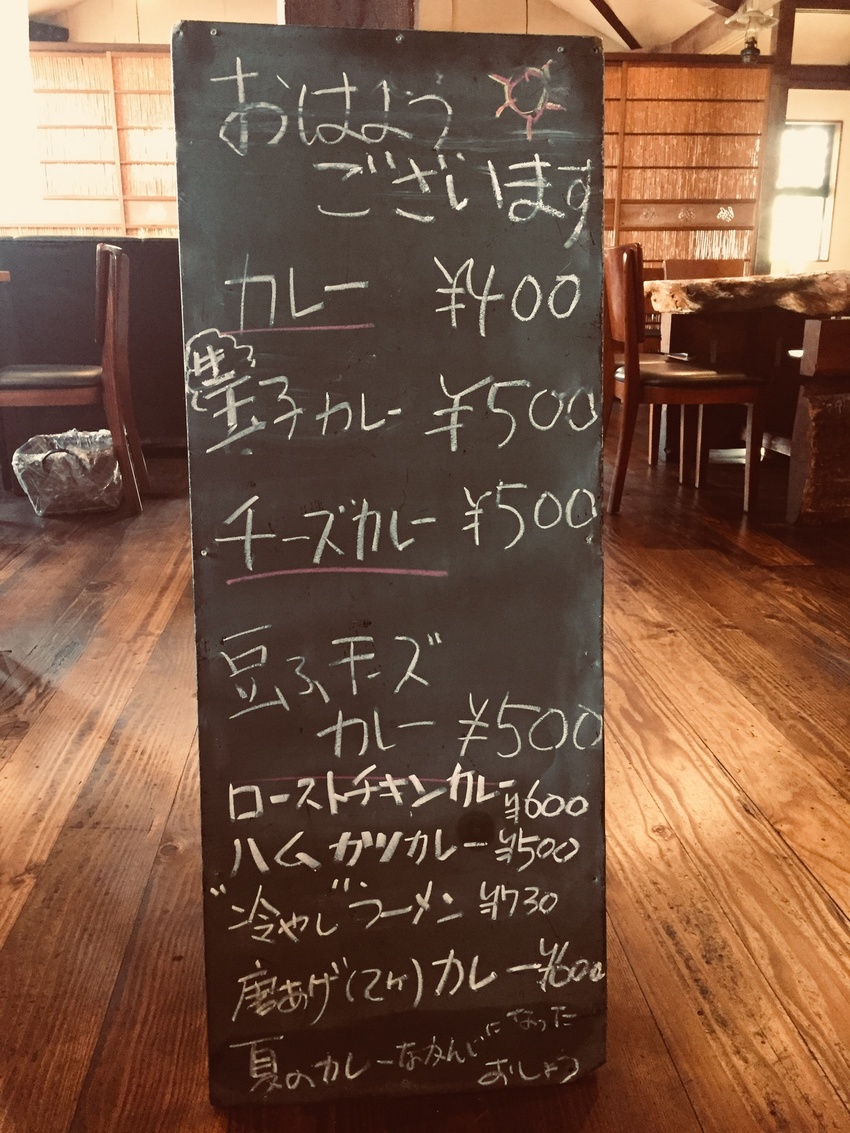 おはよう
ございます
カレー ¥400
生
玉子カレー ¥500
チーズカレー ¥500
豆ふチーズ
カレー ¥500
ローストチキンカレー ¥600
ハムカツカレー ¥500
"冷やし"ラーメン ¥730
唐あげ(2ケ)カレー ¥600
夏のカレーなかんじになった
おしょう